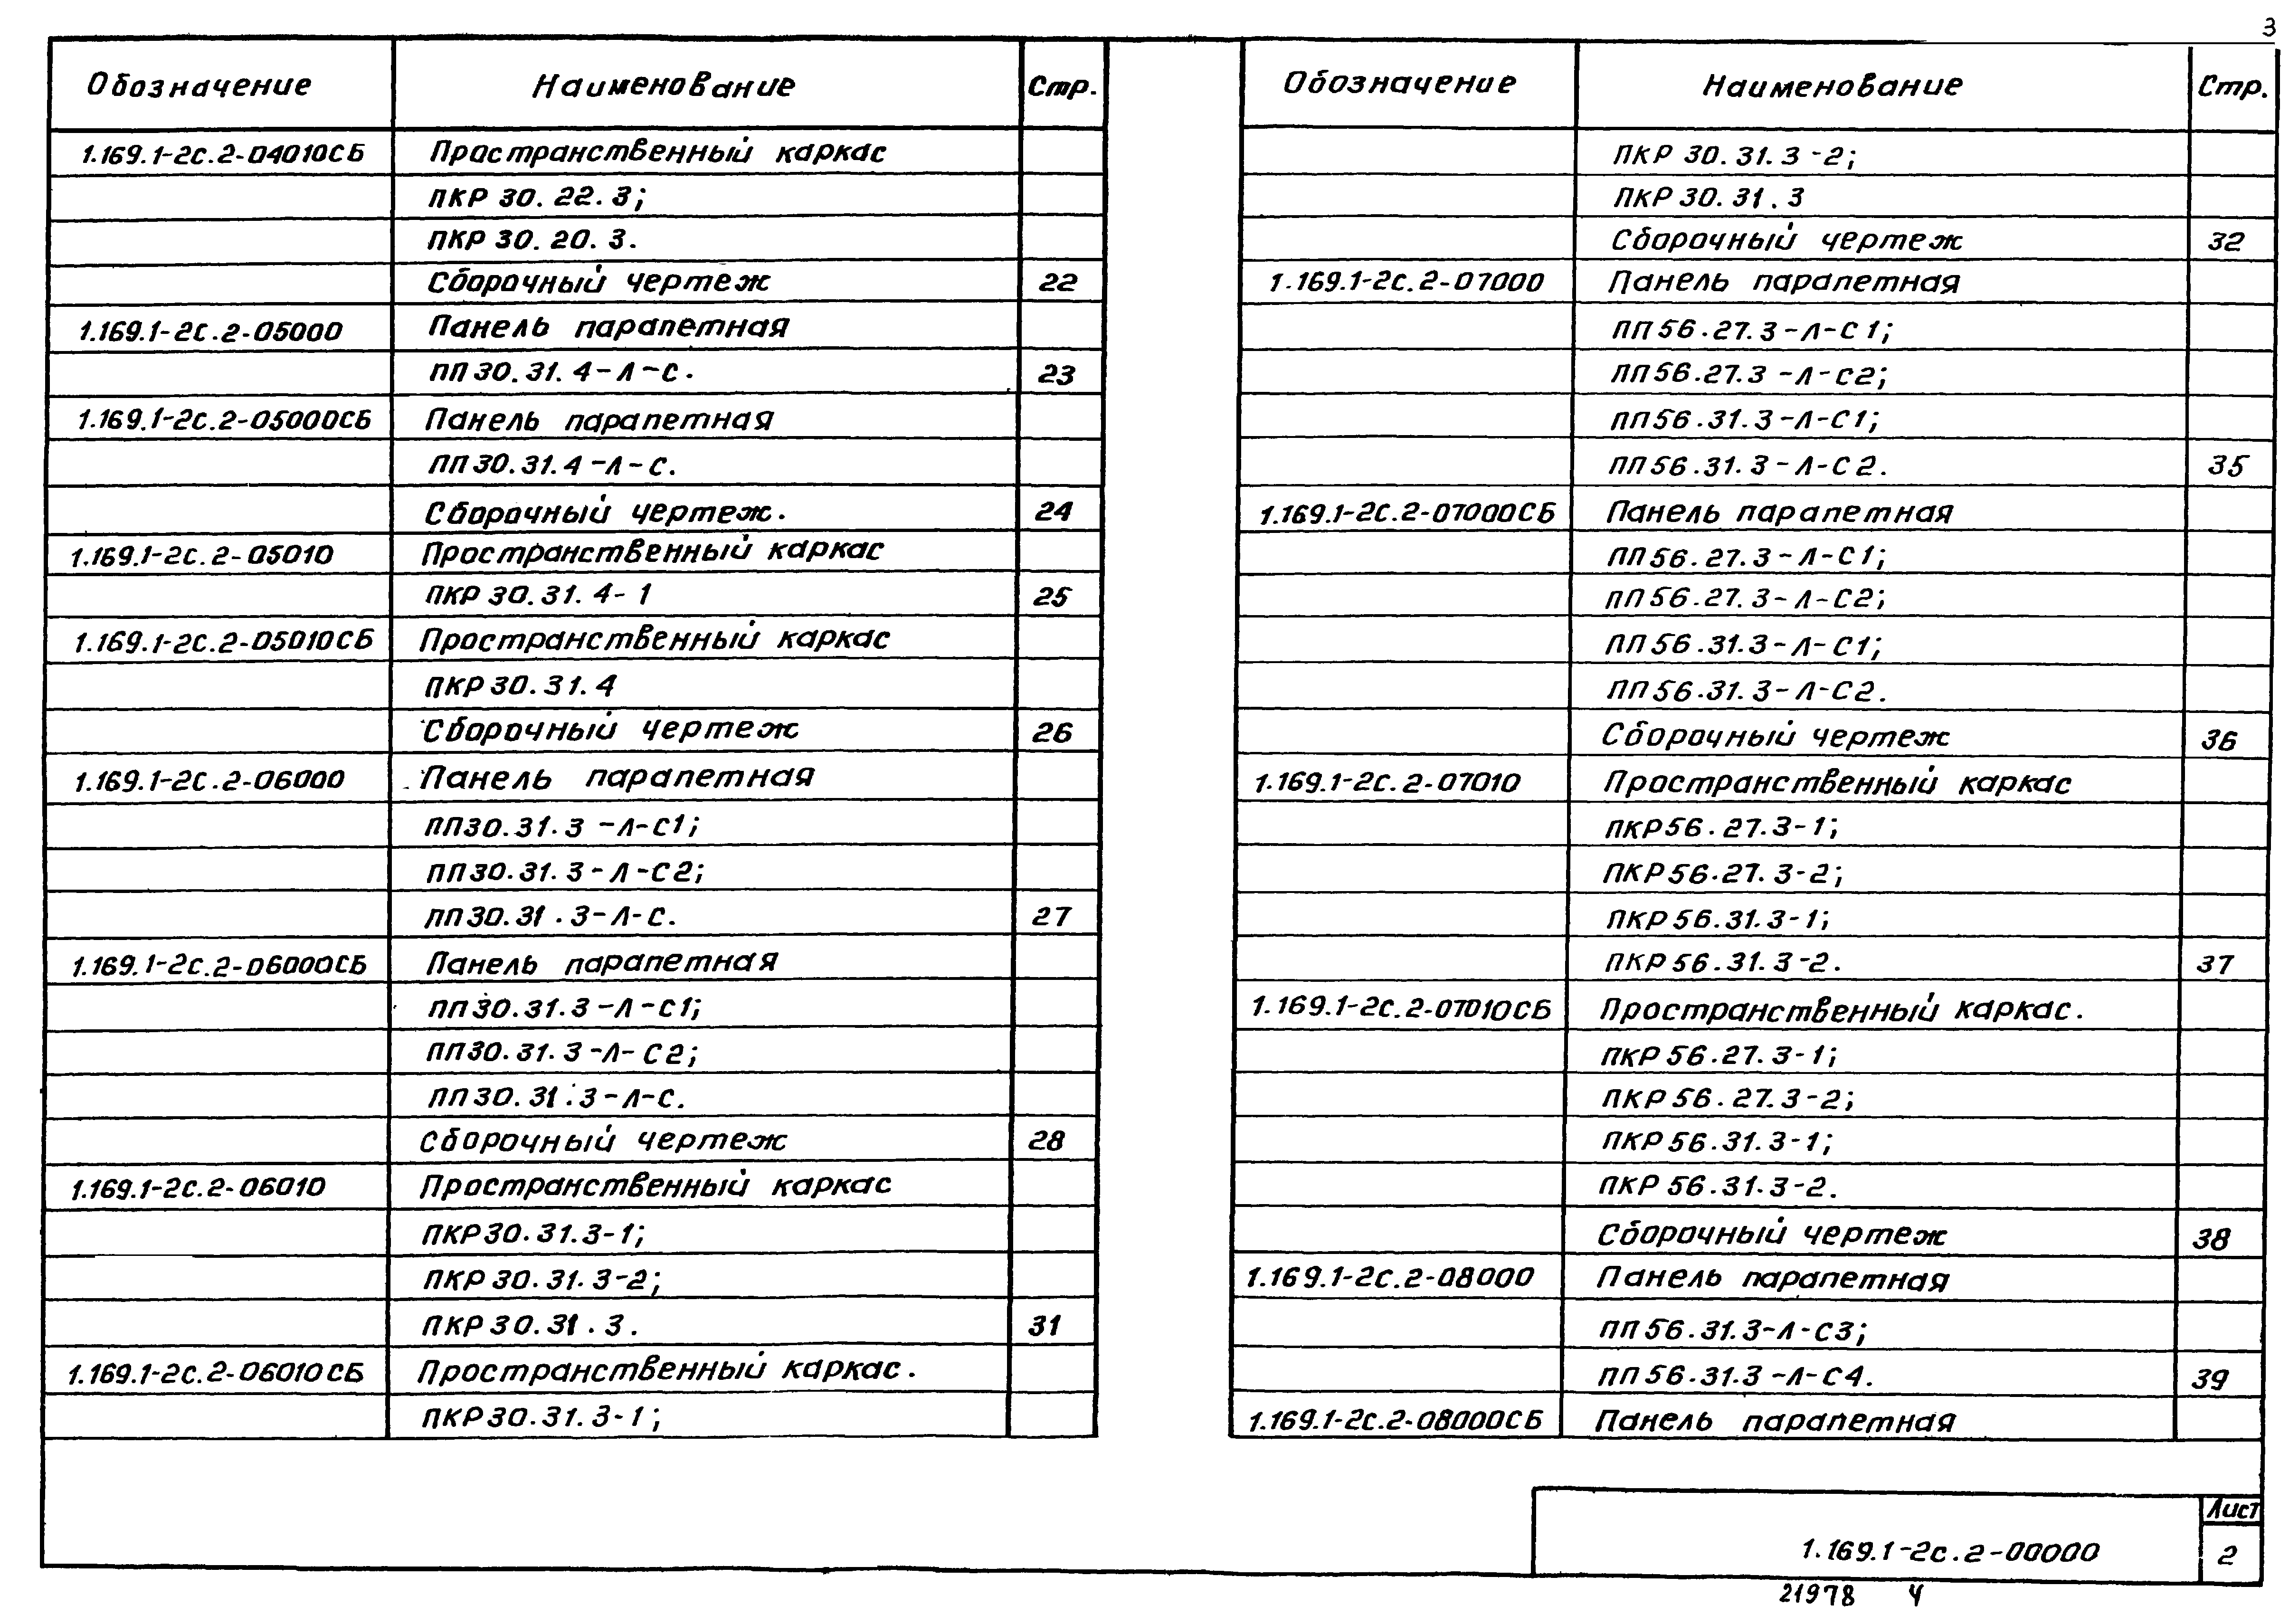 3
Обозначение Наименование Стр.
1.169.1-2с.2-04010СБ Пространственный каркас
ПКР 30.22.3;
ПКР 30.20.3.
Сборочный чертеж 22
1.169.1-2с.2-05000 Панель парапетная
ПП 30.31.4-Л-С. 23
1.169.1-2с.2-05000СБ Панель парапетная
ПП 30.31.4-Л-С.
Сборочный чертеж. 24
1.169.1-2с.2-05010 Пространственный каркас
ПКР 30.31.4-1 25
1.169.1-2с.2-05010СБ Пространственный каркас
ПКР 30.31.4
Сборочный чертеж 26
1.169.1-2с.2-06000 Панель парапетная
ПП30.31.3-Л-С1;
ПП30.31.3-Л-С2;
ПП30.31.3-Л-С. 27
1.169.1-2с.2-06000СБ Панель парапетная
ПП30.31.3-Л-С1;
ПП30.31.3-Л-С2;
ПП30.31.3-Л-С.
Сборочный чертеж 28
1.169.1-2с.2-06010 Пространственный каркас
ПКР30.31.3-1;
ПКР 30.31.3-2;
ПКР 30.31.3. 31
1.169.1-2с.2-06010СБ Пространственный каркас.
ПКР30.31.3-1;
Обозначение Наименование Стр.
ПКР 30.31.3-2;
ПКР 30.31.3
Сборочный чертеж 32
1.169.1-2с.2-07000 Панель парапетная
ПП56.27.3-Л-С1;
ПП56.27.3-Л-С2;
ПП56.31.3-Л-С1;
ПП56.31.3-Л-С2. 35
1.169.1-2с.2-07000СБ Панель парапетная
ПП56.27.3-Л-С1;
ПП56.27.3-Л-С2;
ПП56.31.3-Л-С1;
ПП56.31.3-Л-С2.
Сборочный чертеж 36
1.169.1-2с.2-07010 Пространственный каркас
ПКР56.27.3-1;
ПКР56.27.3-2;
ПКР56.31.3-1;
ПКР56.31.3-2. 37
1.169.1-2с.2-07010СБ Пространственный каркас.
ПКР 56.27.3-1;
ПКР 56.27.3-2;
ПКР 56.31.3-1;
ПКР 56.31.3-2.
Сборочный чертеж 38
1.169.1-2с.2-08000 Панель парапетная
ПП56.31.3-Л-С3;
ПП56.31.3-Л-С4. 39
1.169.1-2с.2-08000СБ Панель парапетная
Лист
1.169.1-2с.2-00000 2
21978 4